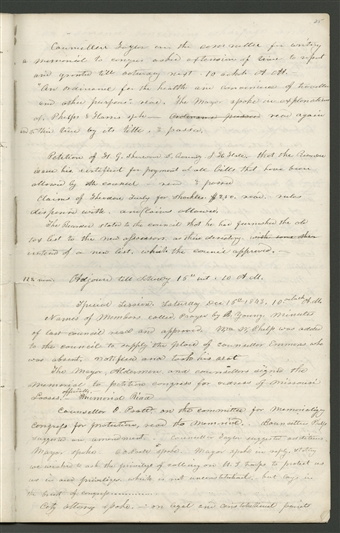 Councillor Taylor on the committee for writing
a memorial to congress asked extension of time to report
and granted till saturday next 10 oclock A.M.
"An ordinance for the health and convenience of travellers
and other purposes" read. The Mayor spoke in explanation
of. Phelps & Harris spoke read again
time by its title & passed.
Petition of H. G. Sherwood that the
issue his certificate for payment of all bills that have been
allowed by the council - read & passed
Claims of Theodore Turley for Shackles read. rules
dispensed with. and claims allowed.
The Recorder stated to the council that he has furnished the old
tax list to the new assessors, as this
instead of a new list, which the council approved.
Adjourned till saturday 16th inst. 10 A.M.
Special Session Saturday Dec 16th 1843. 10 oclock A.M.
Names of Members called Prayer by A. Young, Minutes
of last council read and approved. Wm W. Phelps was asked
to the council to supply the place of councillor who
was absent. notified and took his seat
The Mayor, Aldermen and councillors signed the
Memorial to petition congress for redress of Missouri
Losses. officially Memorial Read
Councillor O. Pratt, on the committee for Memorializing
Congress for protection, read the Memorial.
suggested an amendment. councillor Taylor suggested additions
Mayor spoke. spoke. Mayor spoke in reply. stating
we wished to ask the privilege of calling on U. S. troops to protect us
in our privileges, which is not unconstitutional, but lays in
the breast of congress
City attorney spoke. on legal and constitutional points